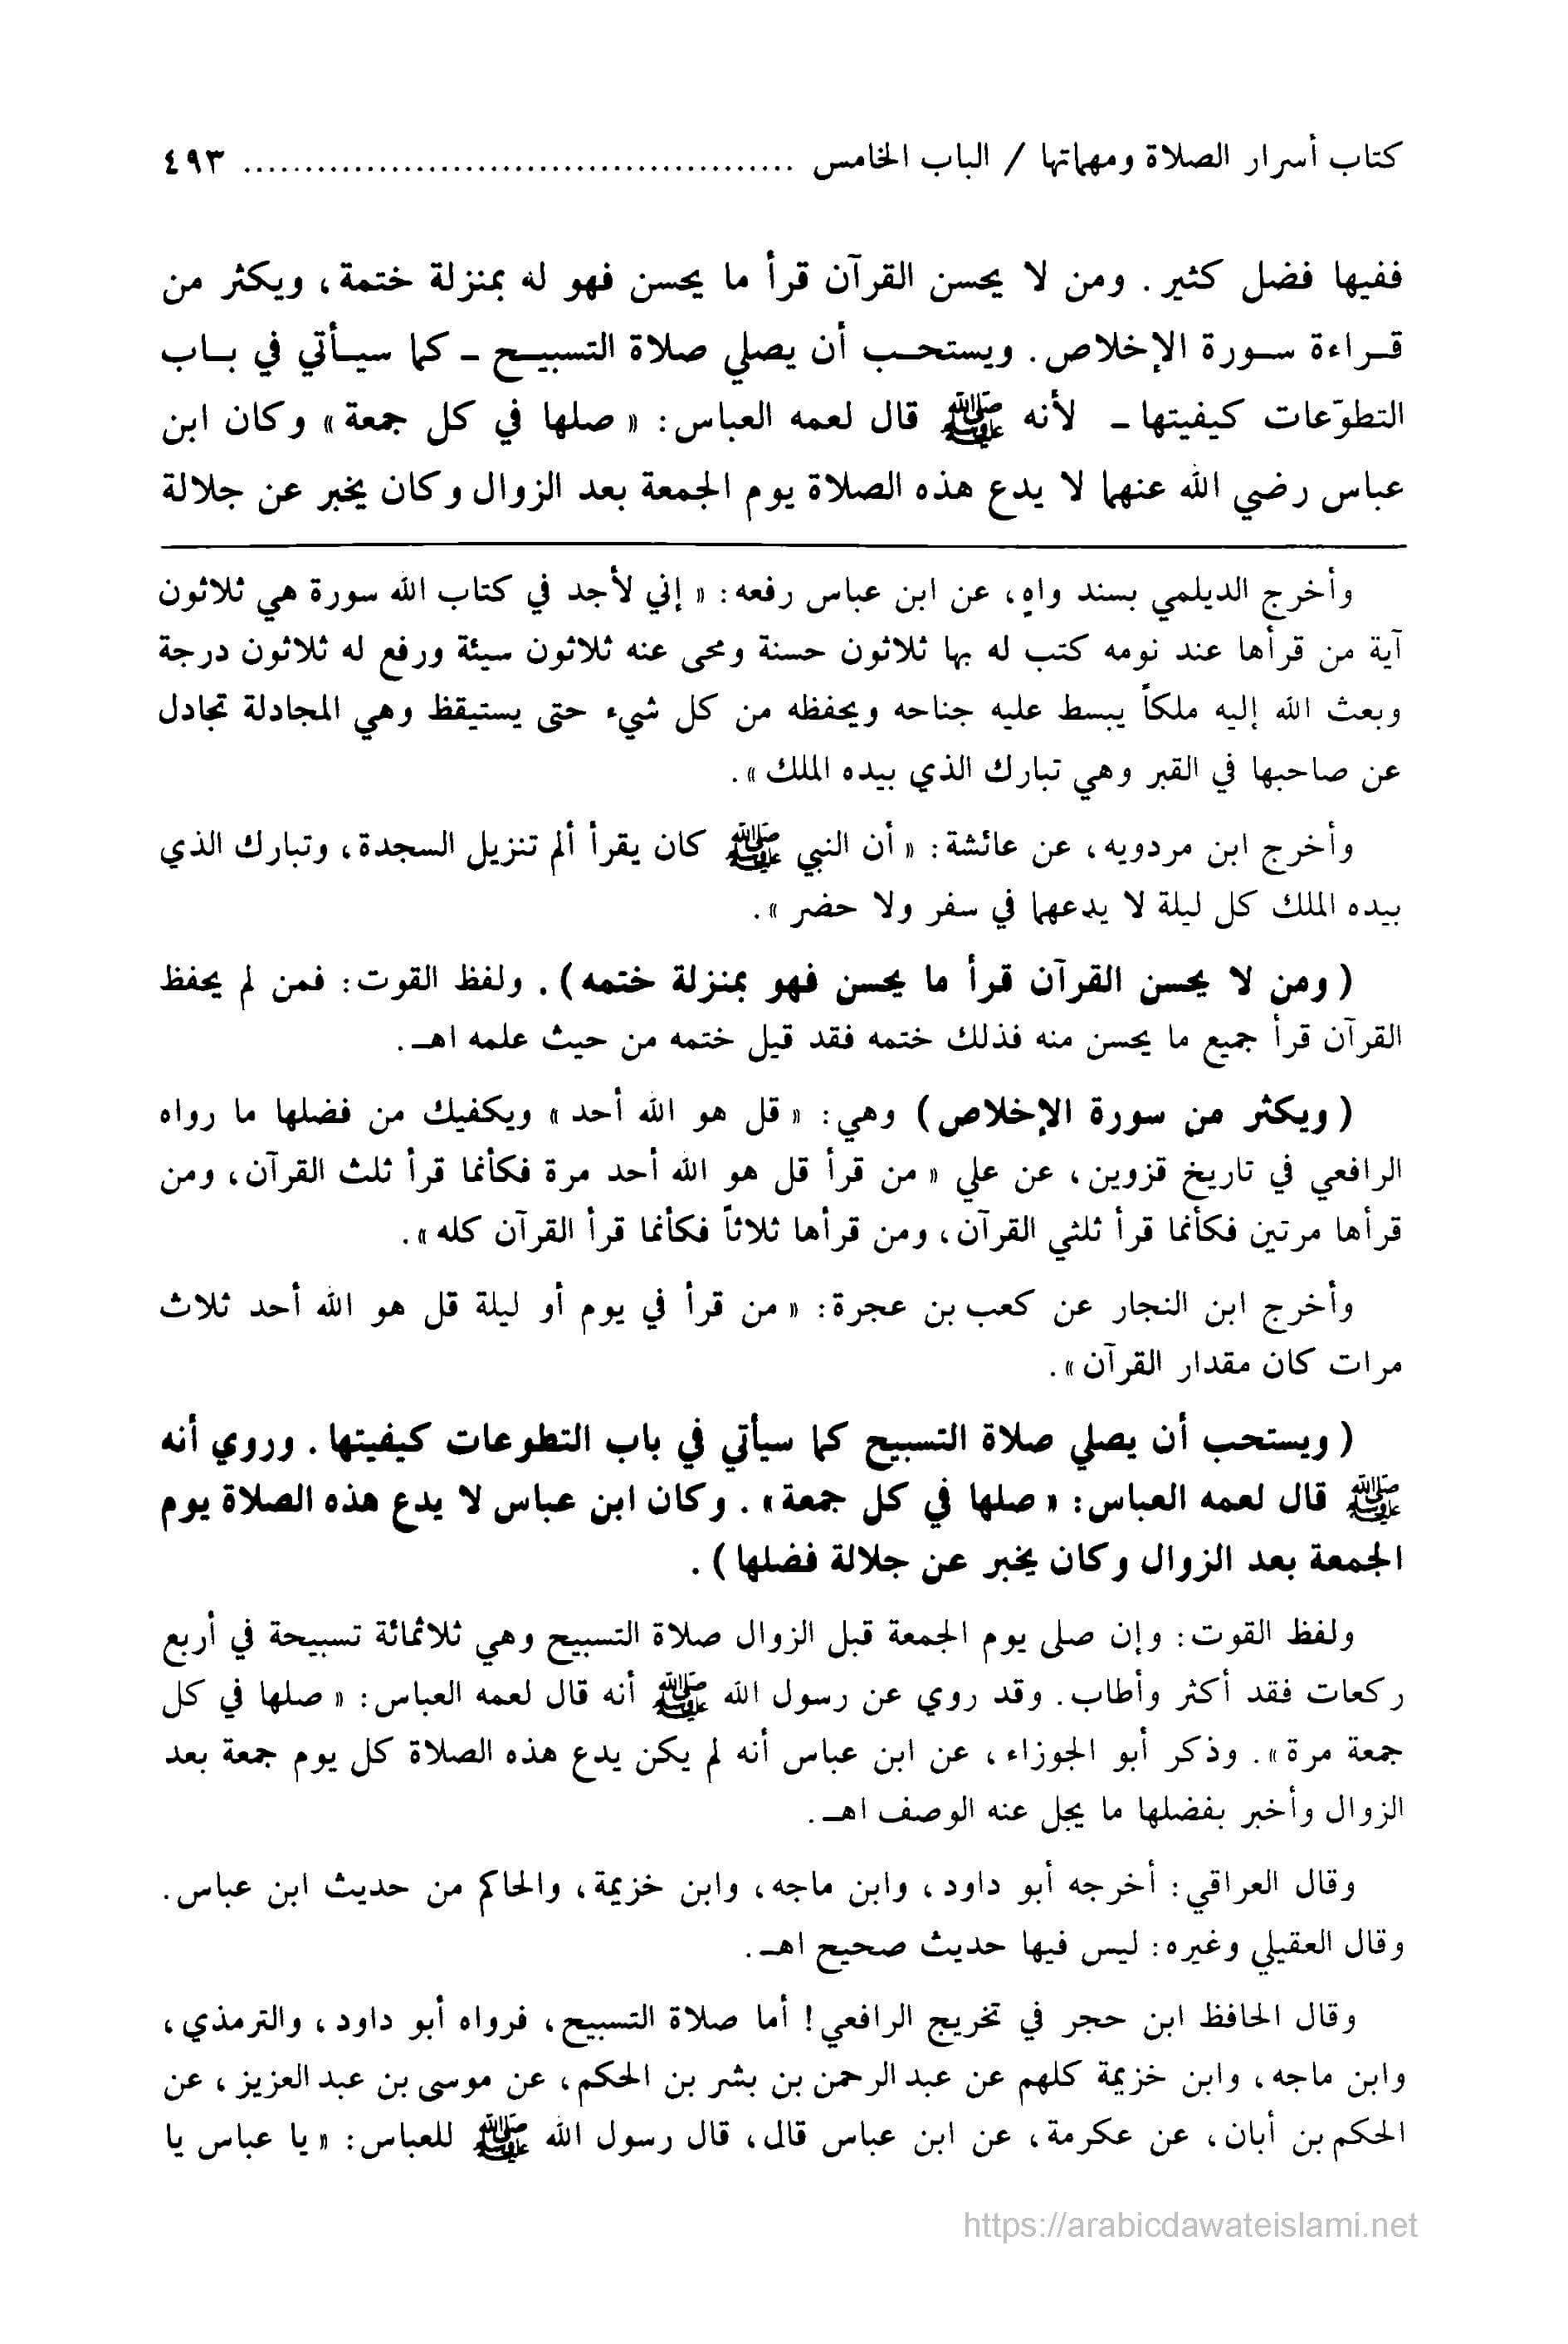 كتاب أسرار الصلاة ومهماتها / الباب الخامس ............................................. ٤٩٣
ففيها فضل كثير. ومن لا يحسن القرآن قرأ ما يحسن فهو له بمنزلة ختمة، ويكثر من
قـراءة سـورة الإخلاص. ويستحـب أن يصلي صلاة التسبيـح ـ كما سيـأتي في بـاب
التطوّعات كيفيتها ـ لأنه ﷺ قال لعمه العباس: « صلها في كل جمعة » وكان ابن
عباس رضي الله عنهما لا يدع هذه الصلاة يوم الجمعة بعد الزوال وكان يخبر عن جلالة
وأخرج الديلمي بسند واهٍ، عن ابن عباس رفعه: « إني لأجد في كتاب الله سورة هي ثلاثون
آية من قرأها عند نومه كتب له بها ثلاثون حسنة ومحى عنه ثلاثون سيئة ورفع له ثلاثون درجة
وبعث الله إليه ملكاً يبسط عليه جناحه ويحفظه من كل شيء حتى يستيقظ وهي المجادلة تجادل
عن صاحبها في القبر وهي تبارك الذي بيده الملك ».
وأخرج ابن مردويه، عن عائشة: « أن النبي ﷺ كان يقرأ ألم تنزيل السجدة، وتبارك الذي
بيده الملك كل ليلة لا يدعهما في سفر ولا حضر ».
( ومن لا يحسن القرآن قرأ ما يحسن فهو بمنزلة ختمه ). ولفظ القوت: فمن لم يحفظ
القرآن قرأ جميع ما يحسن منه فذلك ختمه فقد قيل ختمه من حيث علمه اهـ.
( ويكثر من سورة الإخلاص ) وهي: « قل هو الله أحد » ويكفيك من فضلها ما رواه
الرافعي في تاريخ قزوين، عن علي « من قرأ قل هو الله أحد مرة فكأنما قرأ ثلث القرآن، ومن
قرأها مرتين فكأنما قرأ ثلثي القرآن، ومن قرأها ثلاثاً فكأنما قرأ القرآن كله ».
وأخرج ابن النجار عن كعب بن عجرة: « من قرأ في يوم أو ليلة قل هو الله أحد ثلاث
مرات كان مقدار القرآن ».
( ويستحب أن يصلي صلاة التسبيح كما سيأتي في باب التطوعات كيفيتها. وروي أنه
ﷺ قال لعمه العباس: « صلها في كل جمعة ». وكان ابن عباس لا يدع هذه الصلاة يوم
الجمعة بعد الزوال وكان يخبر عن جلالة فضلها ).
ولفظ القوت: وإن صلى يوم الجمعة قبل الزوال صلاة التسبيح وهي ثلاثمائة تسبيحة في أربع
ركعات فقد أكثر وأطاب. وقد روي عن رسول الله ﷺ أنه قال لعمه العباس: « صلها في كل
جمعة مرة ». وذكر أبو الجوزاء، عن ابن عباس أنه لم يكن يدع هذه الصلاة كل يوم جمعة بعد
الزوال وأخبر بفضلها ما يجل عنه الوصف اهـ.
وقال العراقي: أخرجه أبو داود، وابن ماجه، وابن خزيمة، والحاكم من حديث ابن عباس.
وقال العقيلي وغيره: ليس فيها حديث صحيح اهـ.
وقال الحافظ ابن حجر في تخريج الرافعي! أما صلاة التسبيح، فرواه أبو داود، والترمذي،
وابن ماجه، وابن خزيمة كلهم عن عبد الرحمن بن بشر بن الحكم، عن موسى بن عبد العزيز، عن
الحكم بن أبان، عن عكرمة، عن ابن عباس قال، قال رسول الله ﷺ للعباس: « يا عباس يا
https://arabicdawateislami.net